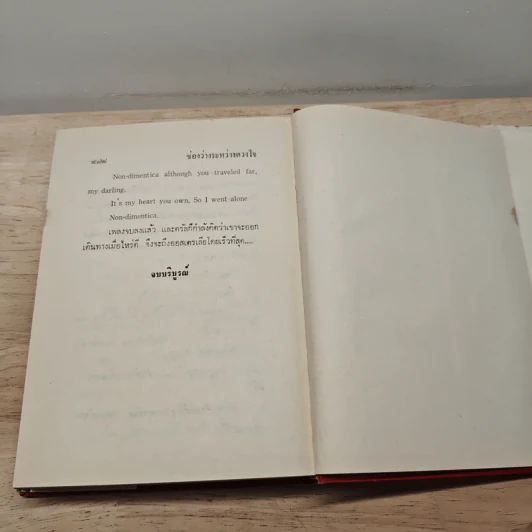 ช่องว่างระหว่างดวงใจ
Non-dimentica although you traveled far,
my darling.
It's my heart you own. So I went alone
Non-dimentica.
เพลงจบลงแล้ว และครัสก็กำลังคิดว่าเขาจะออก
เดินทางเมื่อไหร่ดี จึงจะถึงออสเตรเลียโดยเร็วที่สุด....
จบบริบูรณ์